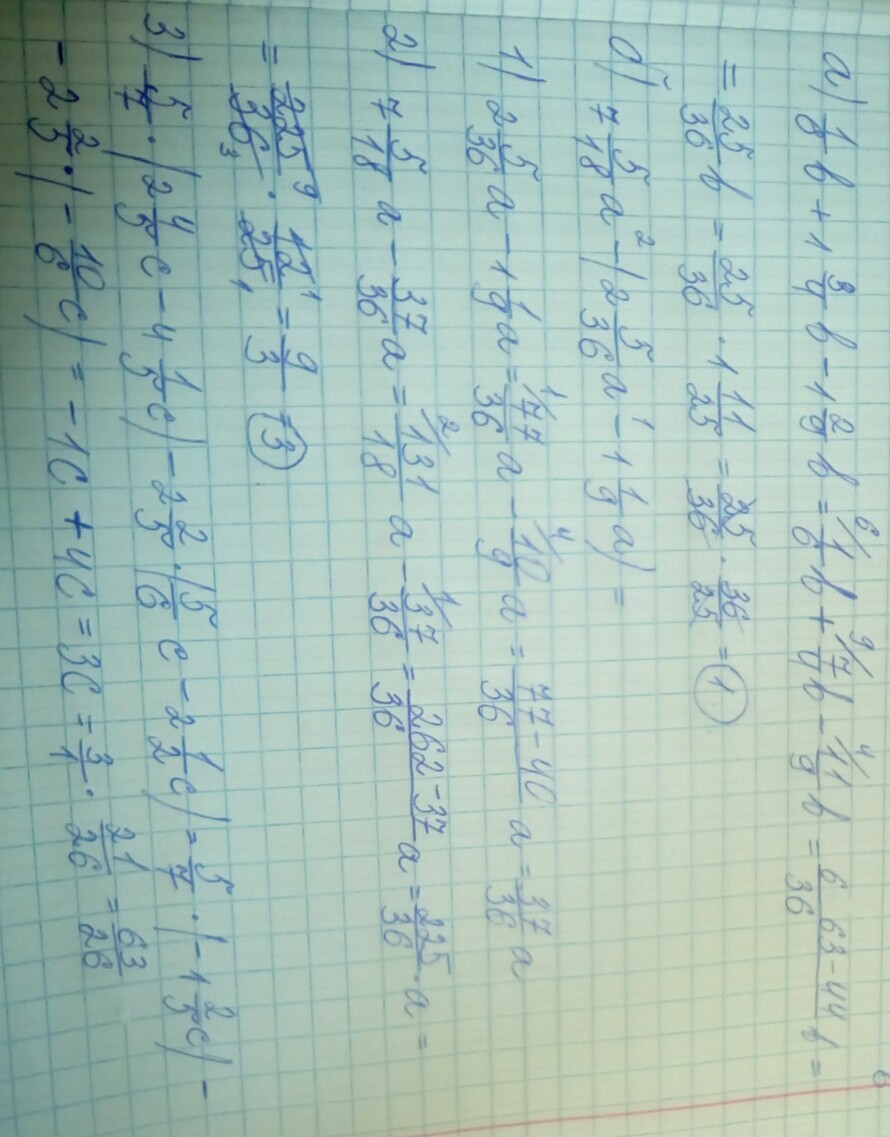 а) 1/6 b + 1 3/4 b - 1 2/9 b = 6/ 1/6 b + 9/ 7/4 b - 4/ 11/9 b = (6 63 - 44)/36 b =
= 25/36 b = 25/36 · 1 11/25 = 25/36 · 36/25 = 1
б) 7 5/18 а -² (2 5/36 а -¹ 1 1/9 а) =
1) 2 5/36 а - 1 1/9 а = 1/ 77/36 а - 4/ 10/9 а = (77 - 40)/36 а = 37/36 а
2) 7 5/18 а - 37/36 а = 2/ 131/18 а - 1/ 37/36 = (262 - 37)/36 а = 225/36 · а =
= 225 9/36 3 · 12 1/25 1 = 9/3 = 3
3) 5/7 · (2 4/5 с - 4 1/5 с) - 2 2/5 · (5/6 с - 2 1/2 с) = 5/7 · (-1 2/5 с) -
- 2 2/5 · (- 10/6 с) = -1с + 4с = 3с = 3/1 · 21/26 = 63/26